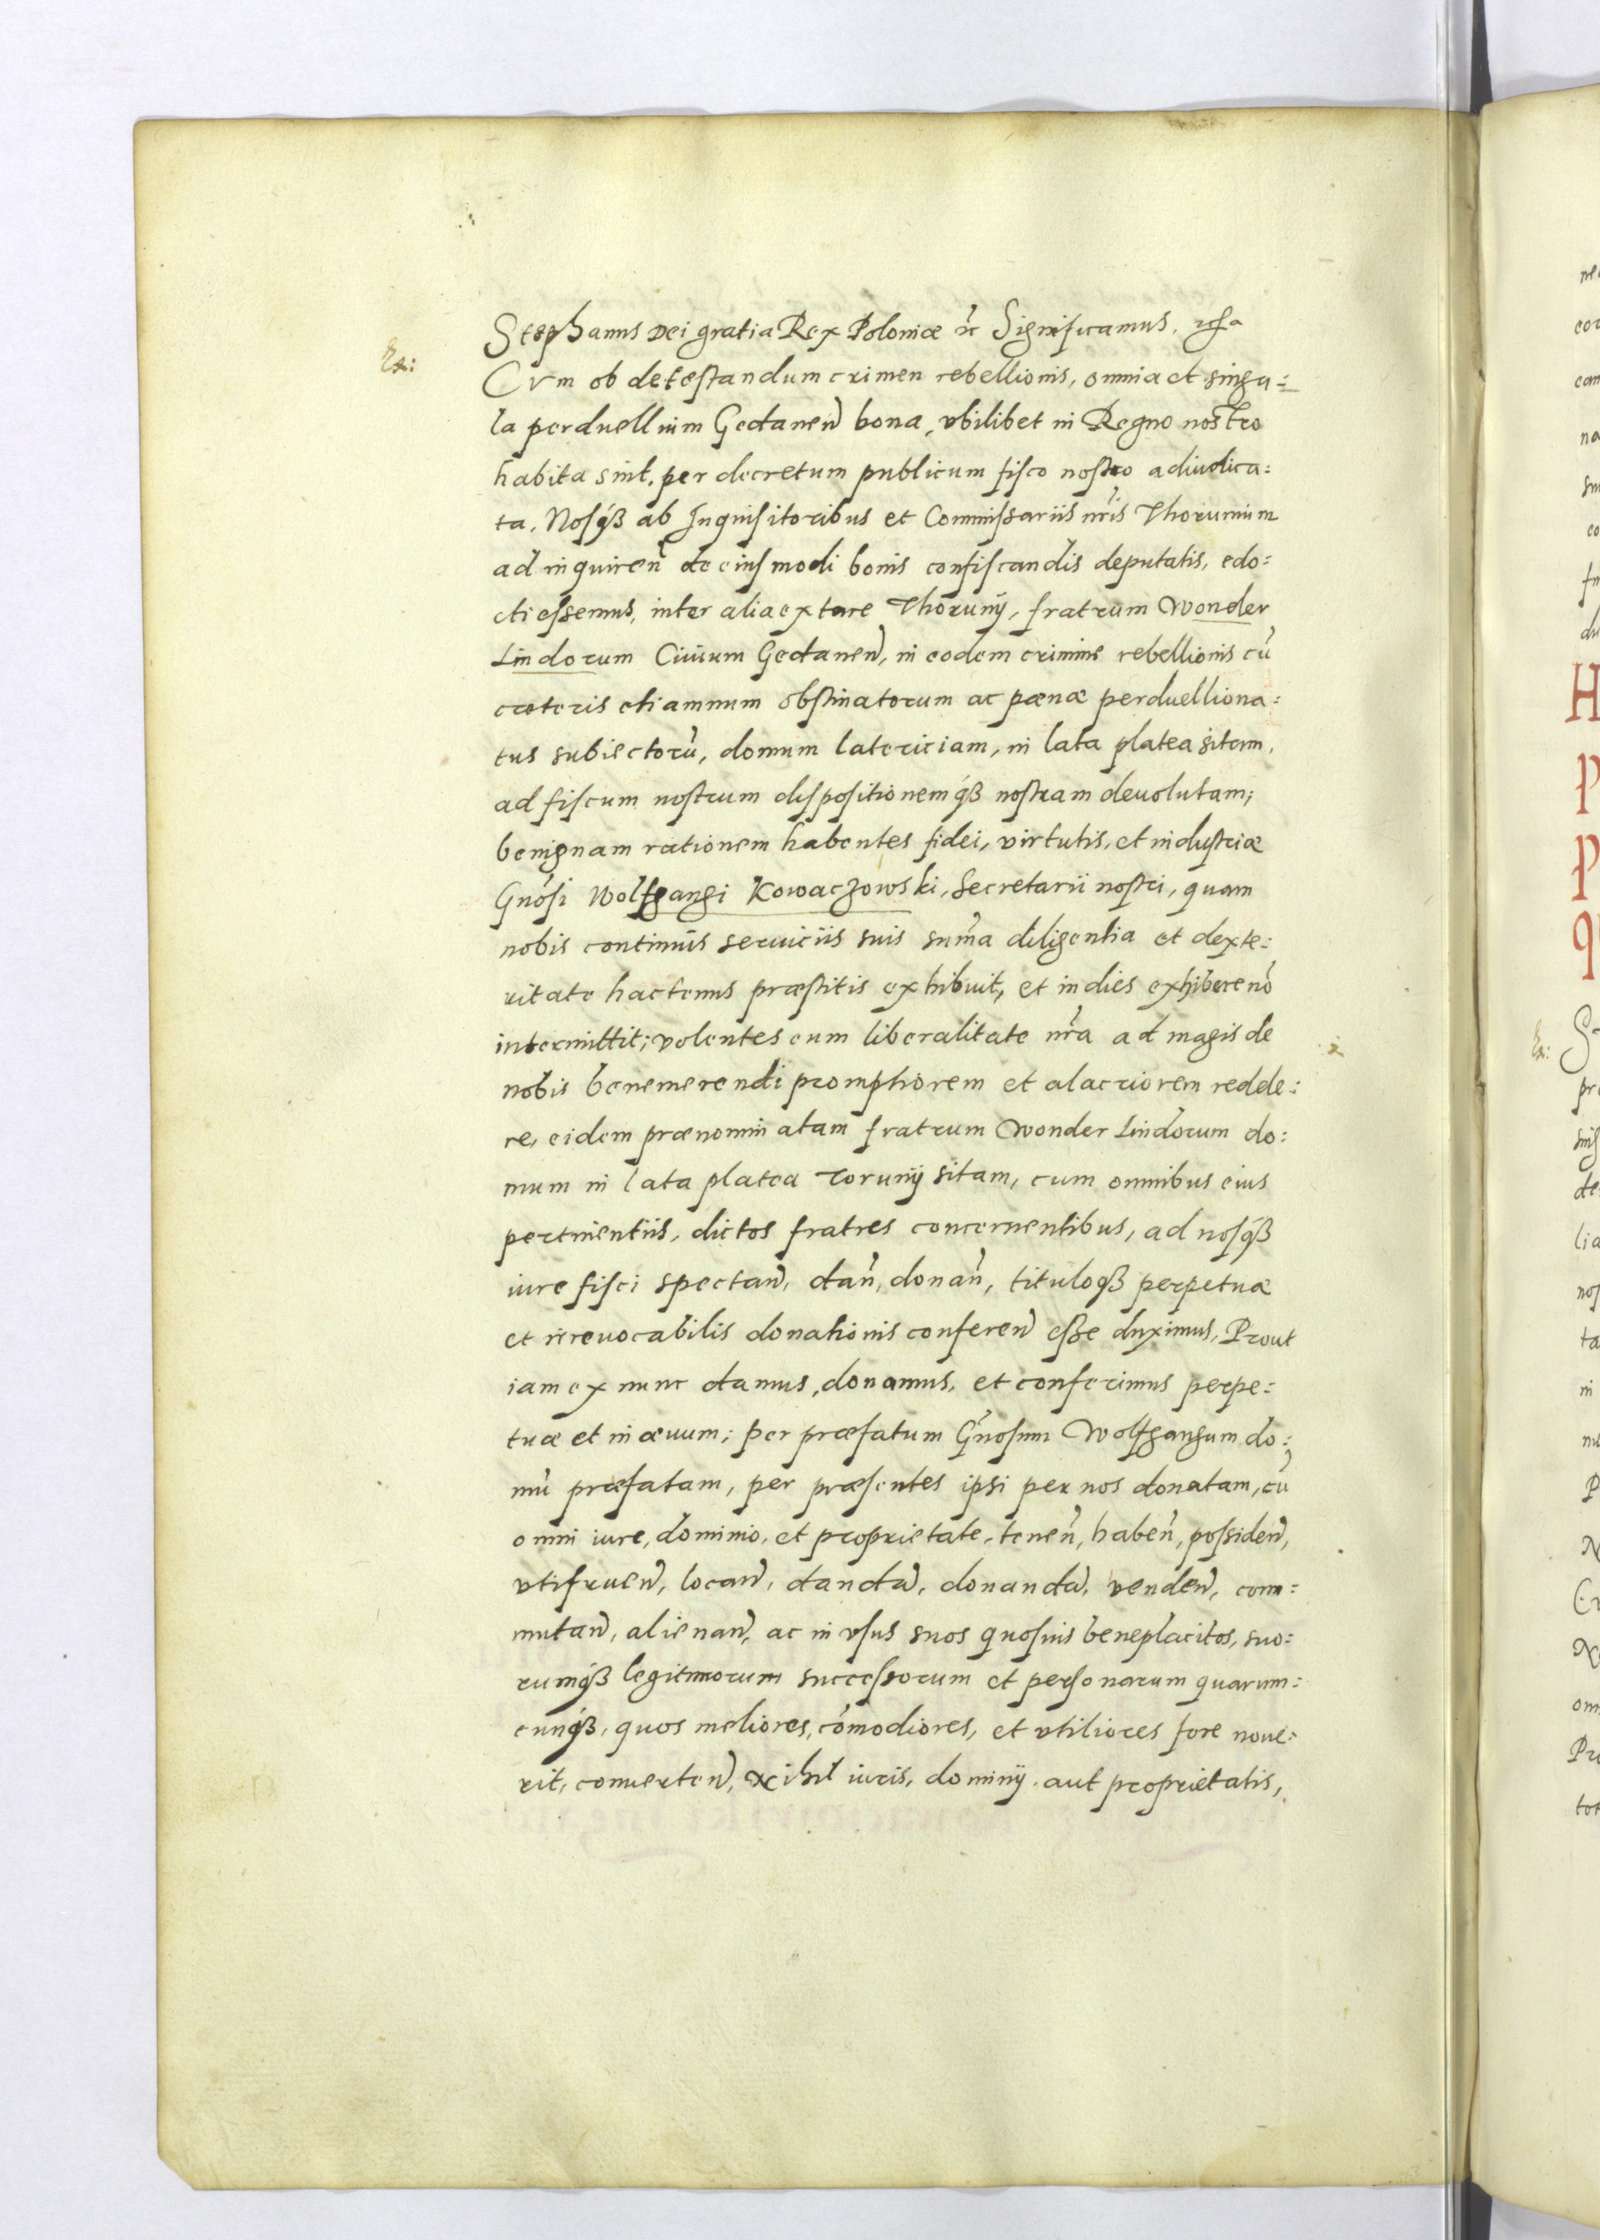 Ex:
Stephanus Dei gratia Rex Poloniæ &c Significamus.
Cum ob detestandum crimen rebellionis, omnia et singu=
la perduellium Gedaneñ bona, vbilibet in Regno nostro
habita sint, per decretum publicum fisco nostro adiudica=
ta. Nosq́ꝫ ab Inquisitoribus et Commissariis nr̃is Thorunium
ad inquireñ de eiusmodi bonis confiscandis deputatis, edo=
cti essemus, inter alia extare Thorunij, fratrum Wonder
Lindorum Ciuium Gedaneñ, in eodem crimine rebellionis cũ
cæteris etiamnum obstinatorum ac pœnæ perduelliona=
tus subiectorũ, domum latericiam, in lata platea sitam,
ad fiscum nostrum dispositionemq́ꝫ nostram deuolutam;
benignam rationem habentes fidei, virtutis, et industriæ
Gnõsi Wolfgangi Kowaczowski, Secretarii nostri, quam
nobis continuis seruiciis suis sum̃a diligentia et dexte=
ritate hactenus præstitis exhibuit, et indies exhibere nõ
intermittit; volentes eum liberalitate nr̃a ad magis de
nobis benemerendi promptiorem et alacriorem redde=
re, eidem prænominatam fratrum Wonder Lindorum do=
mum in lata platea Torunij sitam, cum omnibus eius
pertinentiis, dictos fratres concernentibus, ad nosq́ꝫ
iure fisci spectañ, dañ, donañ, tituloqꝫ perpetuæ
et irreuocabilis donationis confereñ esse duximus, Prout
iam ex nunc damus, donamus, et conferimus perpe=
tuæ et in æuum; Per præfatum Gñosum Wolfgangum do=
mũ præfatam, per præsentes ipsi per nos donatam, cũ
omni iure, dominio, et proprietate, teneñ, habeñ, possideñ,
vtifrueñ, locañ, dandã, donandã, vendeñ, com=
mutañ, alienañ, ac in vsus suos quosuis beneplacitos, suo=
rumq́ꝫ legitimorum successorum et personarum quarum=
cunq́ꝫ, quos meliores, com̃odiores, et vtiliores fore noue=
rit, conuerteñ, Nihil iuris, dominij aut proprietatis,